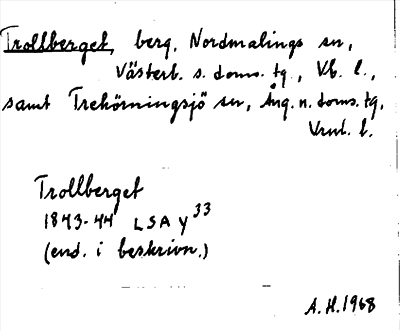 Trollberget, berg, Nordmalings sn,
Västerb. s. doms. tg., Vb. l.,
samt Trehörningsjö sn, Ång. n. doms. tg,
Vrnl. l.
Trollberget
1843-44 LSA Y 33
(end. i beskrivn.)
A. H. 1968